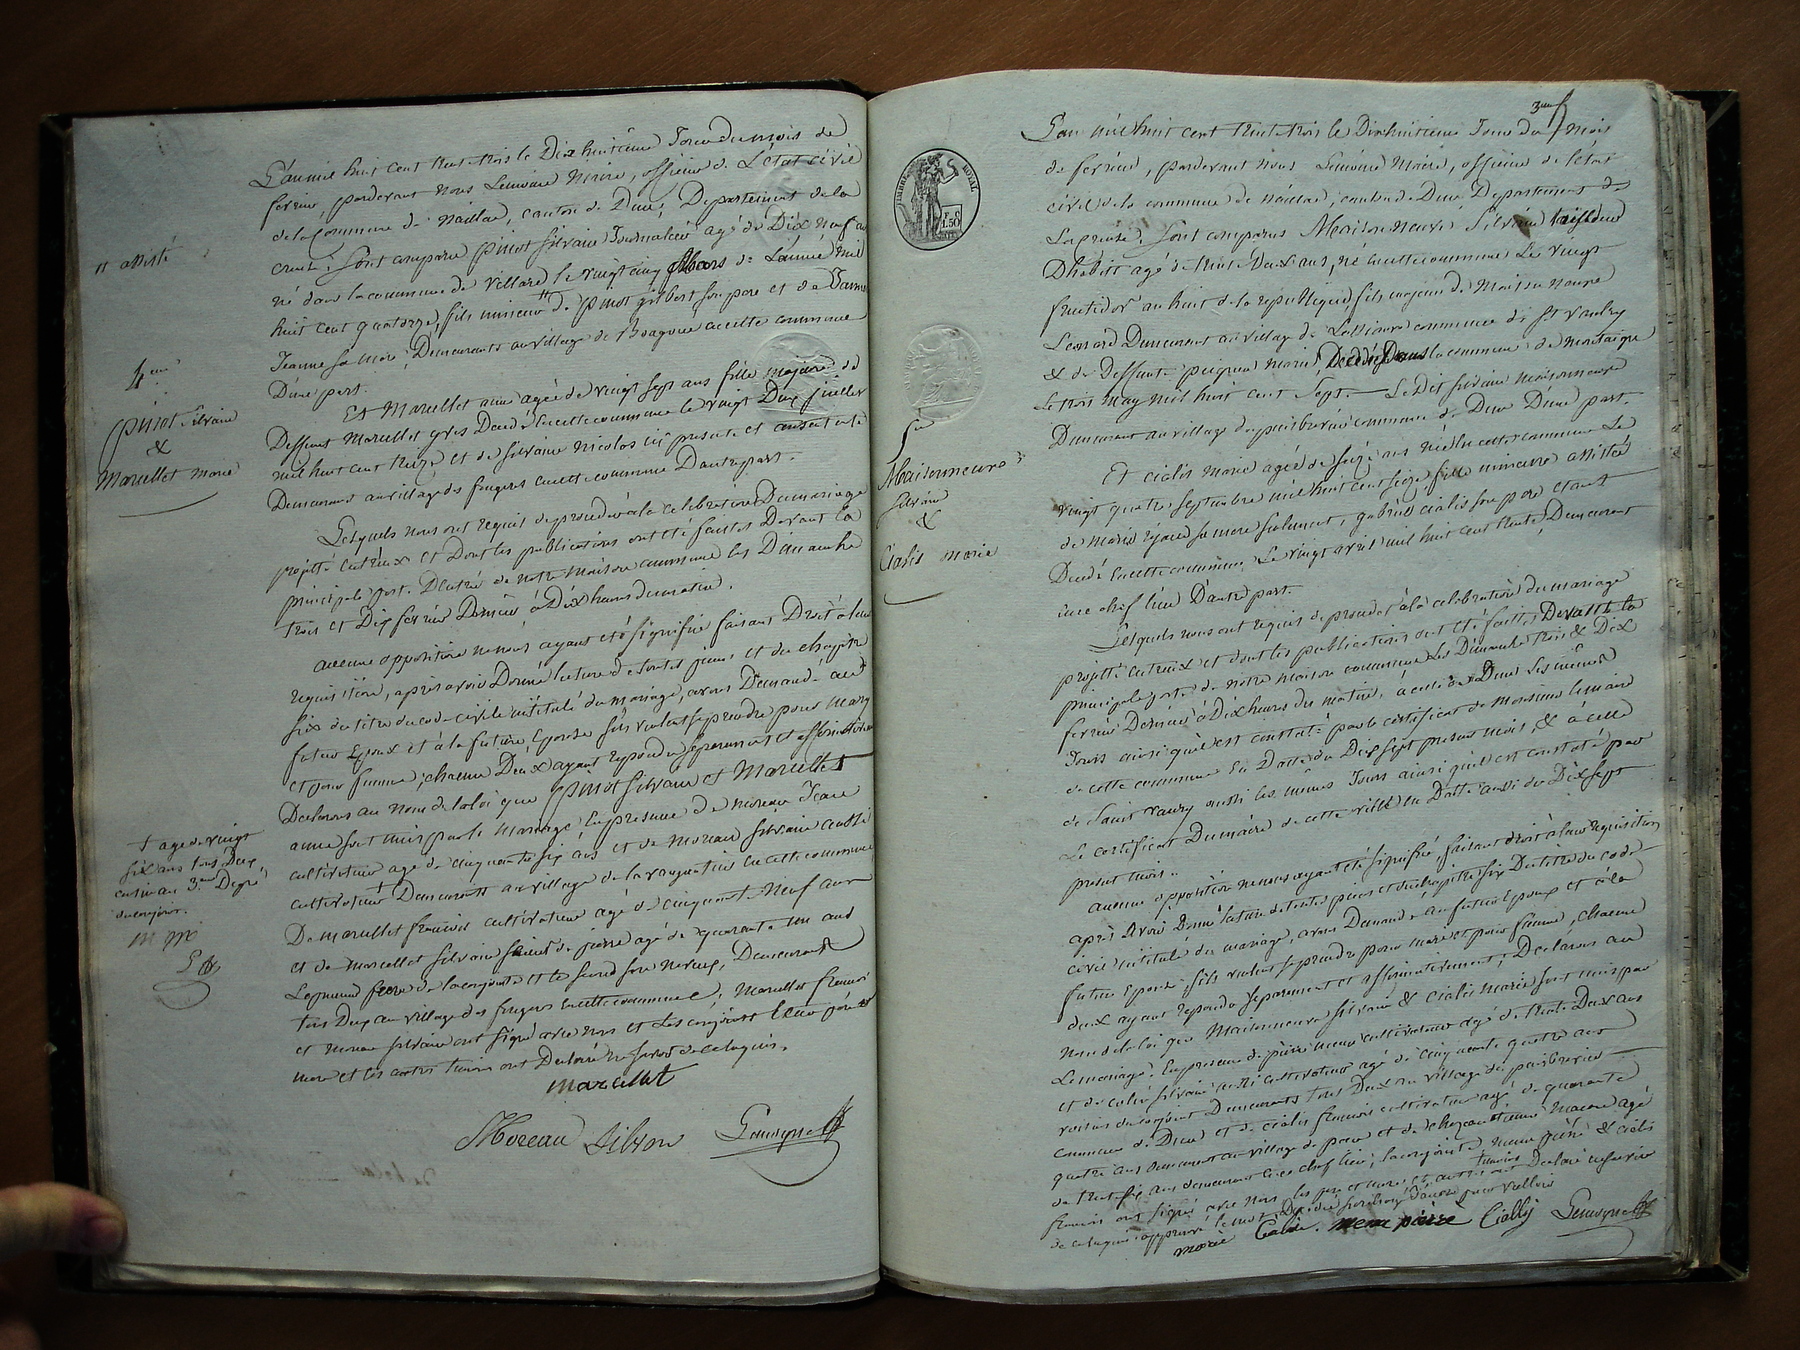 L'an mil huit cent trente trois le Dix huitième Jour du mois de
fevrier, pardevant nous Lemoine Maire, officier de L'état civil
de la Commune de Naillac, canton de Dun, Departement de la
creuse, sont comparu Pinot Silvain Journalier agé de Dix Neuf ans
né dans la commune de Villard le vingt cinq Mars de L'année mil
huit cent quatorze, fils mineur de pinot gilbert son pere et de
Jeanne sa mere, Demeurants au village de cette commune
D'une part.
Et Marcellet anne agée de vingt sept ans fille majeure de
Deffunt Marcellet Decédé en cette commune le vingt Deux juillet
mil huit cent treize et de silvaine Nicolas ici presente et
Demeurants au village des fougeres en cette commune D'autre part.
Lesquels nous ont requis de proceder à la celebration Du mariage
projetté entr'eux et Dont les publications ont été faites Devant la
principale port D'entré de notre Maison commune les Dimanche
trois et Dix fevrier Dernier à Dix heures du matin.
aucune opposition ne nous ayant été signifié faisant Droit à leur
requisition, après avoir Donné lecture de toutes pieces et du chapitre
six du titre du code civil intitulé du mariage, avons Demandé au
futur Epoux et à la future Epouse s'ils veulent se prendre pour mary
et pour femme, chacun D'eux ayant repondu separement et affirmativement
Declarons au nom de la loi que Pinot Silvain et Marcellet
anne sont unis par le Mariage. En presence de moreau Jean
cultivateur agé de cinquante six ans et de Moreau Silvain aussi
cultivateur Demeurants au village de la en cette commune
De marcellet francois cultivateur agé de cinquante Neuf ans
et de marcellet silvain de pierre agé de quarante un ans
Le premier frere de la conjointe et le second son neveu, Demeurants
tous Deux au village des fougeres en cette commune; Marcellet francois
et Moreau Silvain ont signé avec nous et Les conjoints leur pere et
mere et les autres temoins ont Declaré ne savoir de ce requis.
marcellet
Moreau silvin Lemoyne
assisté
4eme
pinot Silvain
&
Marcellet Marie
+ age de vingt
six ans tous Deux
cousin au 3eme Degré
du conjoint.
3eme
L'an mil huit cent trente trois le Dixhuitieme Jour Du mois
de fevrier, pardevant nous Lemoine Maire, officier de l'état
civil de la commune de naillac, canton de Dun Departement de
La creuse; sont comparus Maisonneuve Silvain tailleur
D'habits agé de trente Deux ans, né en cette commune Le vingt
fructidor an huit de la republique, fils majeur de Maisonneuve
Leonard Demeurant au village de commune de St vaulry
& de Deffunte peigneu marie, Decédé Dans la commune de montaigue
Le trois may mil huit cent sept. Le Dit silvain maisonneuve
Demeurant au village de commune de Dun D'une part.
Et cialis marie agée de seize ans née en cette commune Le
vingt quatre septembre mil huit cent seize fille mineure assistée
de marie sa mere seulement, gabriel cialis son pere etant
Decedé en cette commune Le vingt avril mil huit cent trente, Demeurant
en ce chef lieu D'autre part.
Lesquels nous ont requis de proceder à la celebration du mariage
projetté entr'eux et dont les publications ont été faites Devant la
principale porte de notre maison commune Les Dimanche trois & Dix
fevrier Dernier à Dix heures du matin, à celle de Dun Les mêmes
Jours ainsi qu'il est constaté par le certificat de Monsieur Le maire
de cette commune En Datte du Dix sept present mois, & à celle
de Saint Vaury aussi les mêmes Jours ainsi qu'il est constaté par
Le certificat Du maire de cette ville en Datte aussi du Dix sept
present mois.
aucune opposition ne nous ayant été signifié, faisant droit à leur requisition
après avoir Donné lecture de toutes pieces et du chapitre six Du titre du code
civil intitulé du mariage, avons Demandé au futur Epoux et à la
future Epouse, s'ils veulent se prendre pour mari et pour femme, chacun
deux ayant repondu separement et affirmativement; Declarons au
nom de la loi que Maisonneuve Silvain & Cialis Marie sont unis par
Le mariage. En presence de pierre cultivateur agé de trente Deux ans
et de silvain aussi cultivateur agé de cinquante quatre ans
voisins du conjoint Demeurants tous Deux au village de
commune de Dun et de cialis francois cultivateur agé de quarante
quatre ans demeurant au village de et de Macon agé
de trente six ans demeurant en ce chef lieu; la conjointe pierre & cialis
francois ont signé avec nous les pere et mere et autres temoins ont Declaré ne savoir
de ce requis approuvé le mot
marie Cialis. pierre Cialis Lemoyne
5eme
Maisonneuve
Silvain
&
Cialis marie
TIMBRE ROYAL
F. C.
1.50